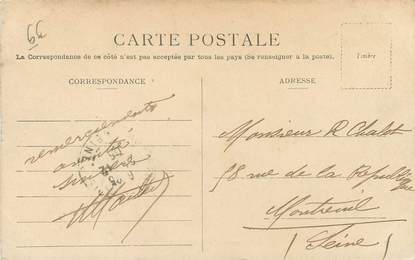 69
CARTE POSTALE
La Correspondance de ce côté n'est pas acceptée par tous les pays (Se renseigner à la poste).
Timbre
CORRESPONDANCE
ADRESSE
remerciements
amitié
sincère
Monsieur R Chalot
98 rue de la République
Montreuil
(Seine)